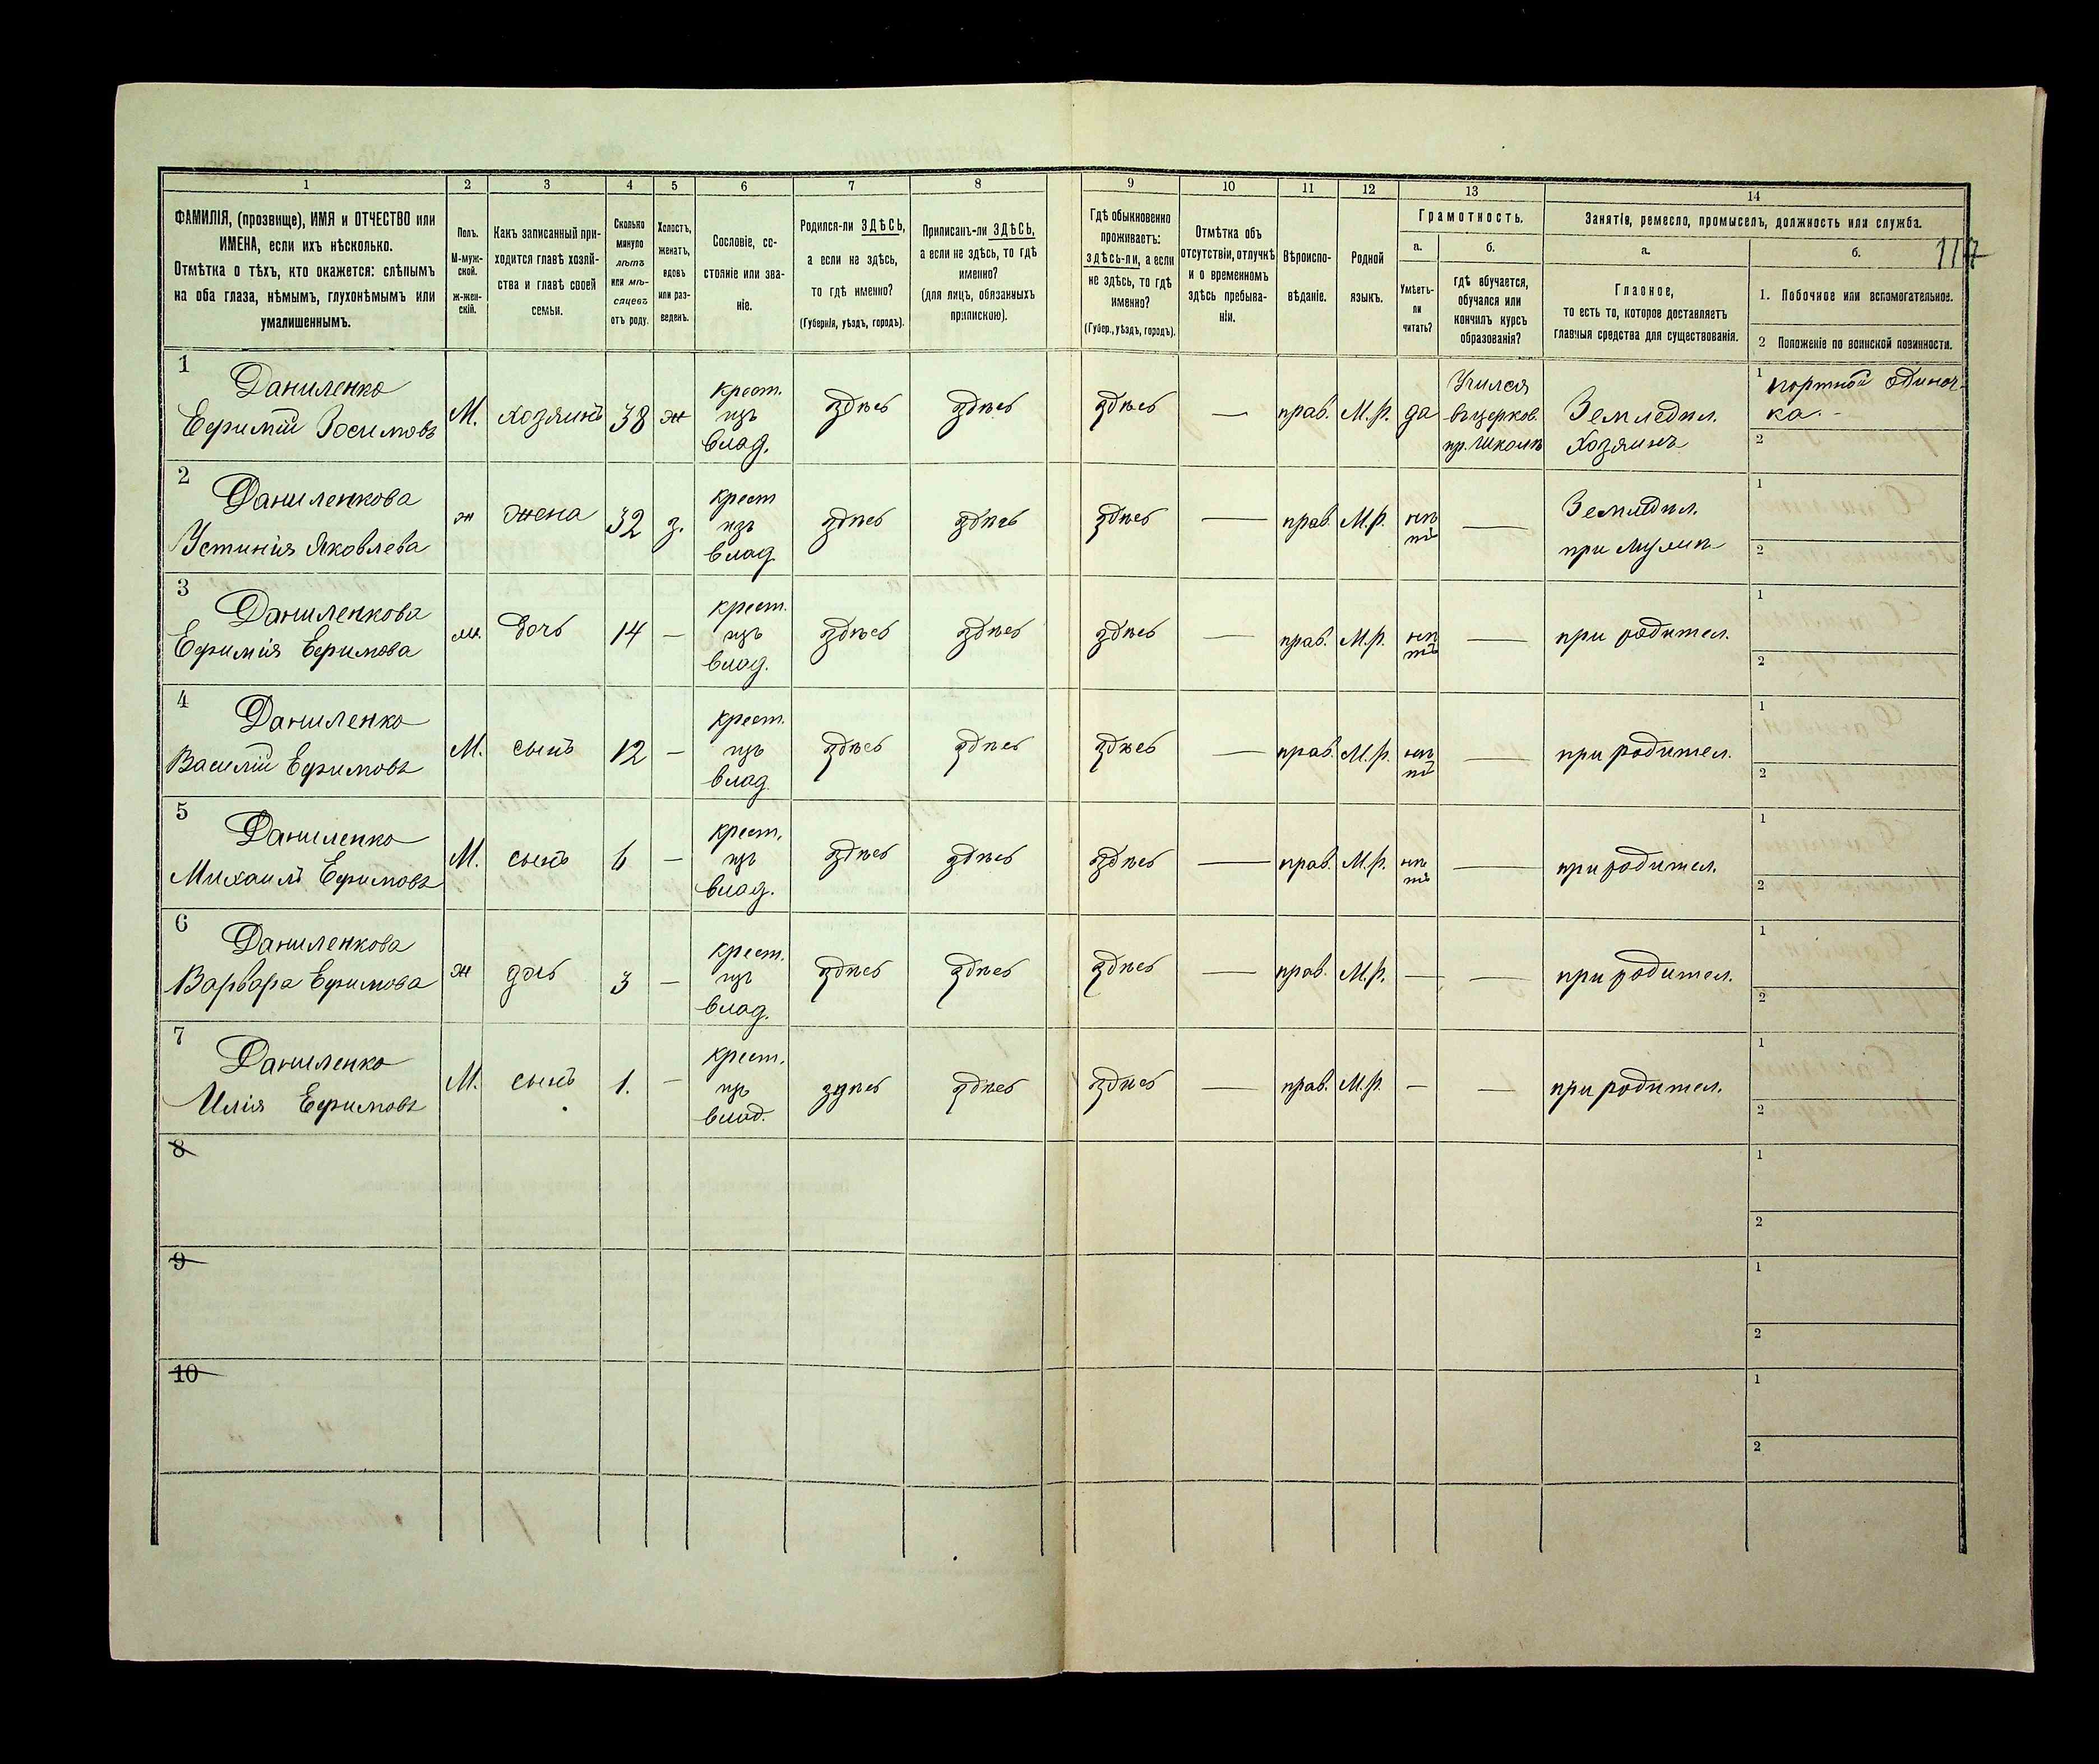 1 2 3 4 5 6 7 8 9 10 11 12 13 14
ФАМИЛІЯ, (прозвище), ИМЯ и ОТЧЕСТВО или
ИМЕНА, если ихъ нѣсколько.
Отмѣтка о тѣхъ, кто окажется: слѣпымъ
на оба глаза, нѣмымъ, глухонѣмымъ или
умалишеннымъ.
Полъ.
М-муж-
ской.
ж-жен-
скій.
Какъ записанный при-
ходится главѣ хозяй-
ства и главѣ своей
семьи.
Сколько
минуло
лѣтъ
или мѣ-
сяцевъ
отъ роду.
Холостъ,
женатъ,
вдовъ
или раз-
веденъ.
Сословіе, со-
стояніе или зва-
ніе.
Родился-ли ЗДѢСЬ,
а если не здѣсь,
то гдѣ именно?
(Губернія, уѣздъ, городъ).
Приписанъ-ли ЗДѢСЬ,
а если не здѣсь, то гдѣ
именно?
(для лицъ, обязанныхъ
припискою).
Гдѣ обыкновенно
проживаетъ:
здѣсь-ли, а если
не здѣсь, то гдѣ
именно?
(Губер., уѣздъ, городъ).
Отмѣтка объ
отсутствіи, отлучкѣ
и о временномъ
здѣсь пребыва-
ніи.
Вѣроиспо-
вѣданіе.
Родной
языкъ.
Грамотность.
а.
Умѣетъ-
ли
читать?
б.
гдѣ обучается,
обучался или
кончилъ курсъ
образованія?
Занятіе, ремесло, промыселъ, должность или служба.
а.
Главное,
то есть то, которое доставляетъ
главныя средства для существованія.
б.
117
1. Побочное или вспомогательное.
2 Положеніе по воинской повинности.
1
Даниленко
Ефимій Зосимовъ
М.
хозяинъ
38
ж
крест.
изъ
влад.
здѣсь
здѣсь
здѣсь
—
прав.
М.р.
да
Учился
въ церков.
пр. школѣ
Земледѣл.
Хозяинъ
1 портной одиноч-
ка.-
2
2
Даниленкова
Устинія Яковлева
ж
жена
32
з.
крест
изъ
влад
здѣсь
здѣсь
здѣсь
—
прав.
М.р.
нѣ
тъ
—
Земледѣл.
при мужѣ
1
2
3
Даниленкова
Ефимія Ефимова
ж.
дочь
14
—
крест.
изъ
влад.
здѣсь
здѣсь
здѣсь
—
прав.
М.р.
нѣ
тъ
—
при родител.
1
2
4
Даниленко
Василій Ефимовъ
М.
сынъ
12
—
крест.
изъ
влад.
здѣсь
здѣсь
здѣсь
—
прав.
М.р.
нѣ
тъ
—
при родител.
1
2
5
Даниленко
Михаилъ Ефимовъ
М.
сынъ
6
—
крест.
изъ
влад.
здѣсь
здѣсь
здѣсь
—
прав.
М.р.
нѣ
тъ
—
при родител.
1
2
6
Даниленкова
Варвара Ефимова
ж
дочь
3
—
крест.
изъ
влад.
здѣсь
здѣсь
здѣсь
—
прав.
М.р.
—
—
при родител.
1
2
7
Даниленко
Илія Ефимовъ
М.
сынъ
1.
—
крест.
изъ
влад.
здѣсь
здѣсь
здѣсь
—
прав.
М.р.
—
—
при родител.
1
2
8
1
2
9
1
2
10
1
2